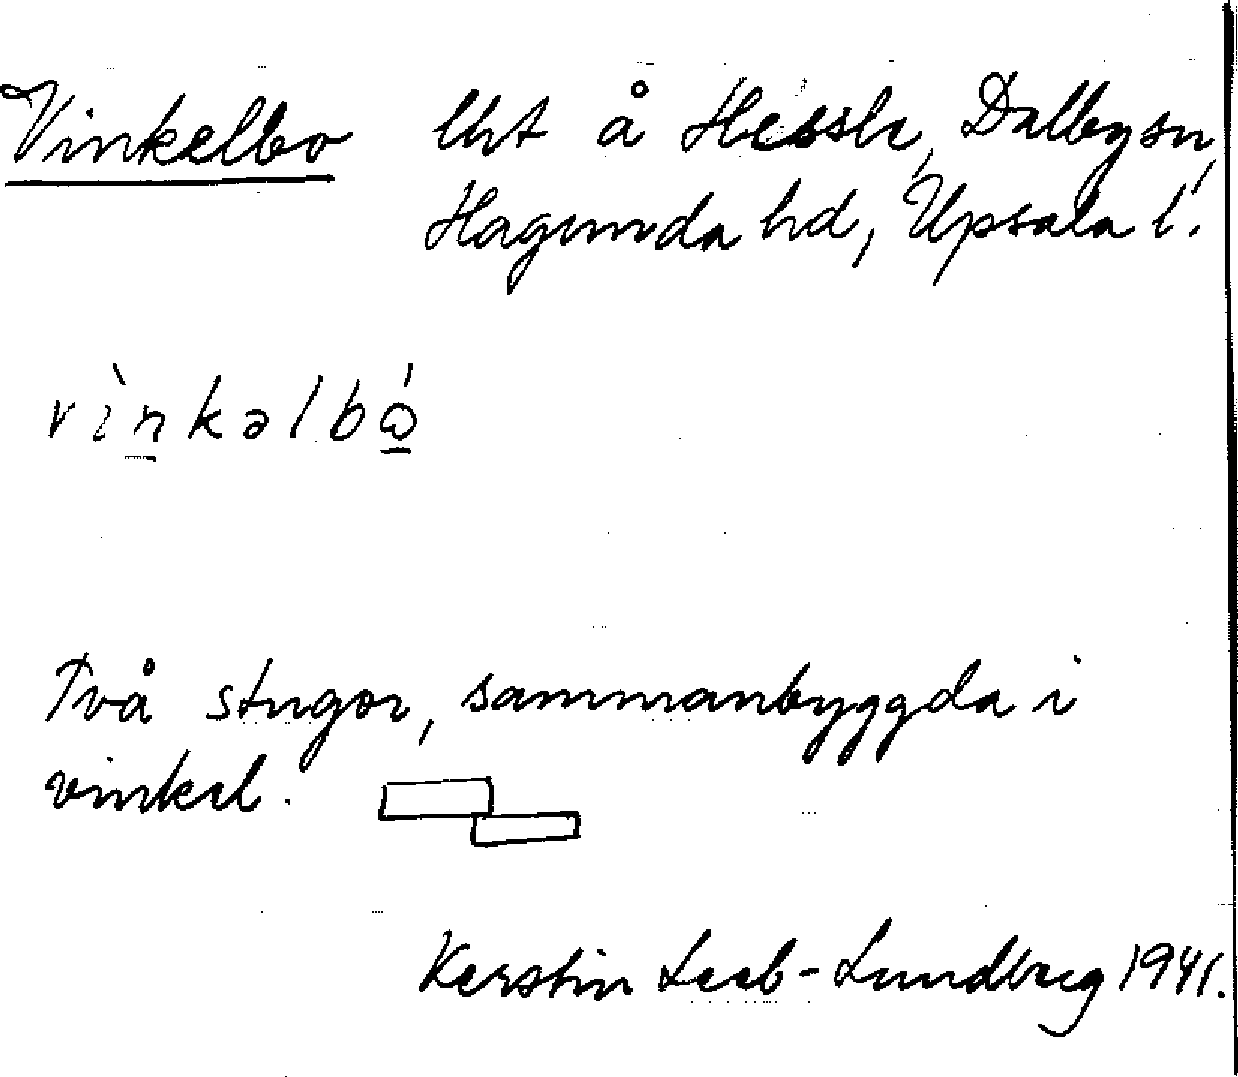 Vinkelbo lht å Hessle, Dalby sn,
Hagunda hd, Upsala l.
vìn̠kəlbώ̠
Två stugor, sammanbyggda i
vinkel.
Kerstin Leeb-Lundberg 1941.